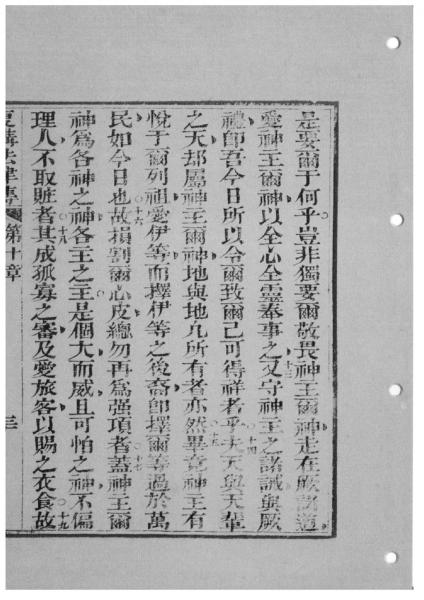 是要爾于何乎豈非獨要爾敬畏神王爾神走在厥諸道
愛神王爾神以全心全靈奉事之十三又守神王之諸誡與厥
禮即吾今日所以令爾致爾己可得祥者乎十四夫天與天輩
之天却屬神王爾神地與地凡所有者亦然十五畢竟神王有
悅于爾列祖愛伊等而擇伊等之後裔即擇爾等過於萬
民如今日也十六故損割爾心皮總勿再為强項者十七蓋神王爾
神為各神之神各主之主是個大而威且可怕之神不偏
理人不取賍者十八其成孤寡之審及愛旅客以賜之衣食十九故
講法律傳 第十章